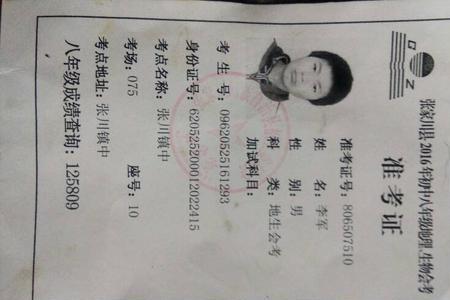 张家川县2016年初中八年级地理、生物会考
准考证
准考证号：806507510
姓 名：李军
性 别：男
科 类：地生会考
加试科目：
考 生 号：09620525161293
身份证号：620525200012022415
考点名称：张川镇中
考场：075 座号：10
考点地址：张川镇中
八年级成绩查询：125809